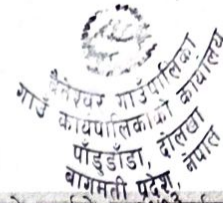 गाउँपालिका
गाउँ कार्यपालिकाको कार्यालय
पाँडुडाँडा, दोलखा
बागमती प्रदेश, नेपाल